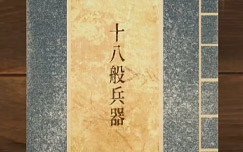 十八般兵器